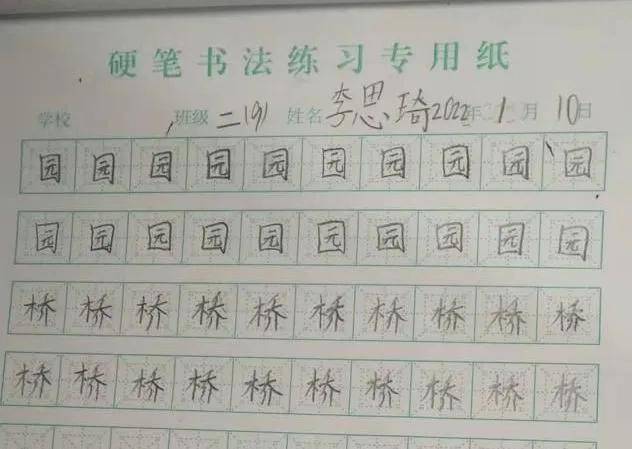 硬笔书法练习专用纸
学校 班级 二(9) 姓名 李思琦 2022年 1月 10日
园园园园园园园园园园
园园园园园园园园园园
桥桥桥桥桥桥桥桥桥桥
桥桥桥桥桥桥桥桥桥桥